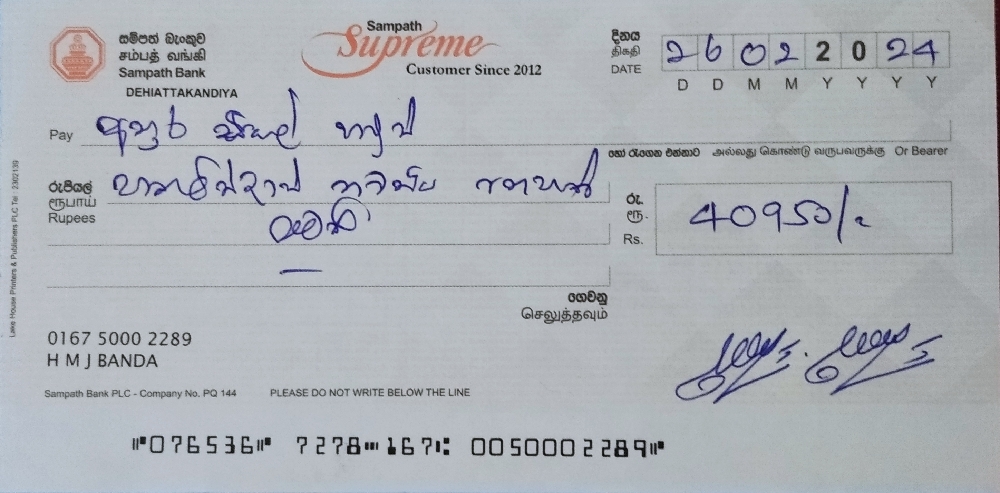 සම්පත් බැංකුව
சம்பத் வங்கி
Sampath Bank
DEHIATTAKANDIYA
Sampath
Supreme
Customer Since 2012
දිනය
திகதி
DATE
26 02 2024
D D M M Y Y Y Y
Pay
හෝ රැගෙන එන්නාට அல்லது கொண்டு வருபவருக்கு Or Bearer
රුපියල්
ரூபாய்
Rupees
රු.
ரூ.
Rs.
40950/-
ගෙවනු
செலுத்தவும்
0167 5000 2289
H M J BANDA
Sampath Bank PLC - Company No. PQ 144 PLEASE DO NOT WRITE BELOW THE LINE
076536 7278 167 0050002289
Lake House Printers & Publishers PLC Tel : 2302139